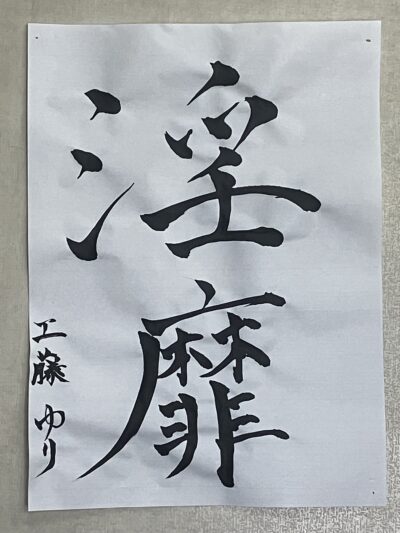 淫靡
工藤ゆり